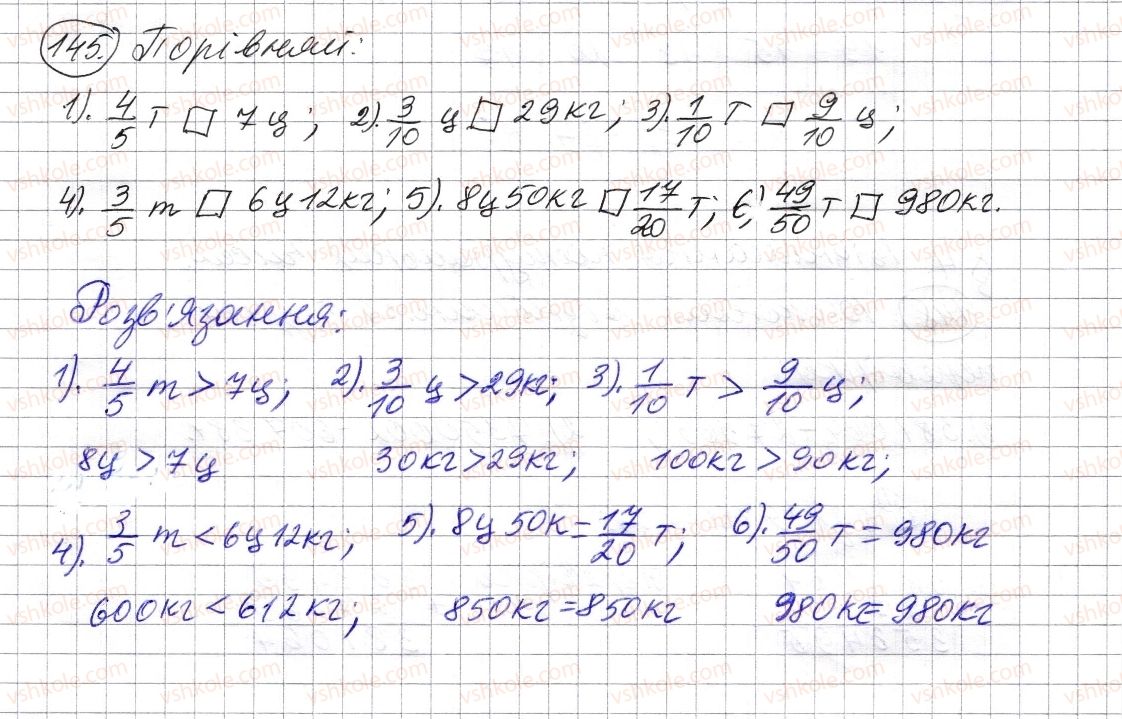 145. Порівняй:
1). 4/5 т □ 7ц; 2). 3/10 ц □ 29кг; 3). 1/10 т □ 9/10 ц;
4). 3/5 т □ 6ц12кг; 5). 8ц50кг □ 17/20 т; 6) 49/50 т □ 980кг.
Розв'язання:
1). 4/5 т > 7ц; 2). 3/10 ц > 29кг; 3). 1/10 т > 9/10 ц;
8ц > 7ц 30кг > 29кг; 100кг > 90кг;
4). 3/5 т < 6ц12кг; 5). 8ц50к = 17/20 т; 6). 49/50 т = 980кг
600кг < 612кг; 850кг = 850кг 980кг = 980кг
vshkole.com